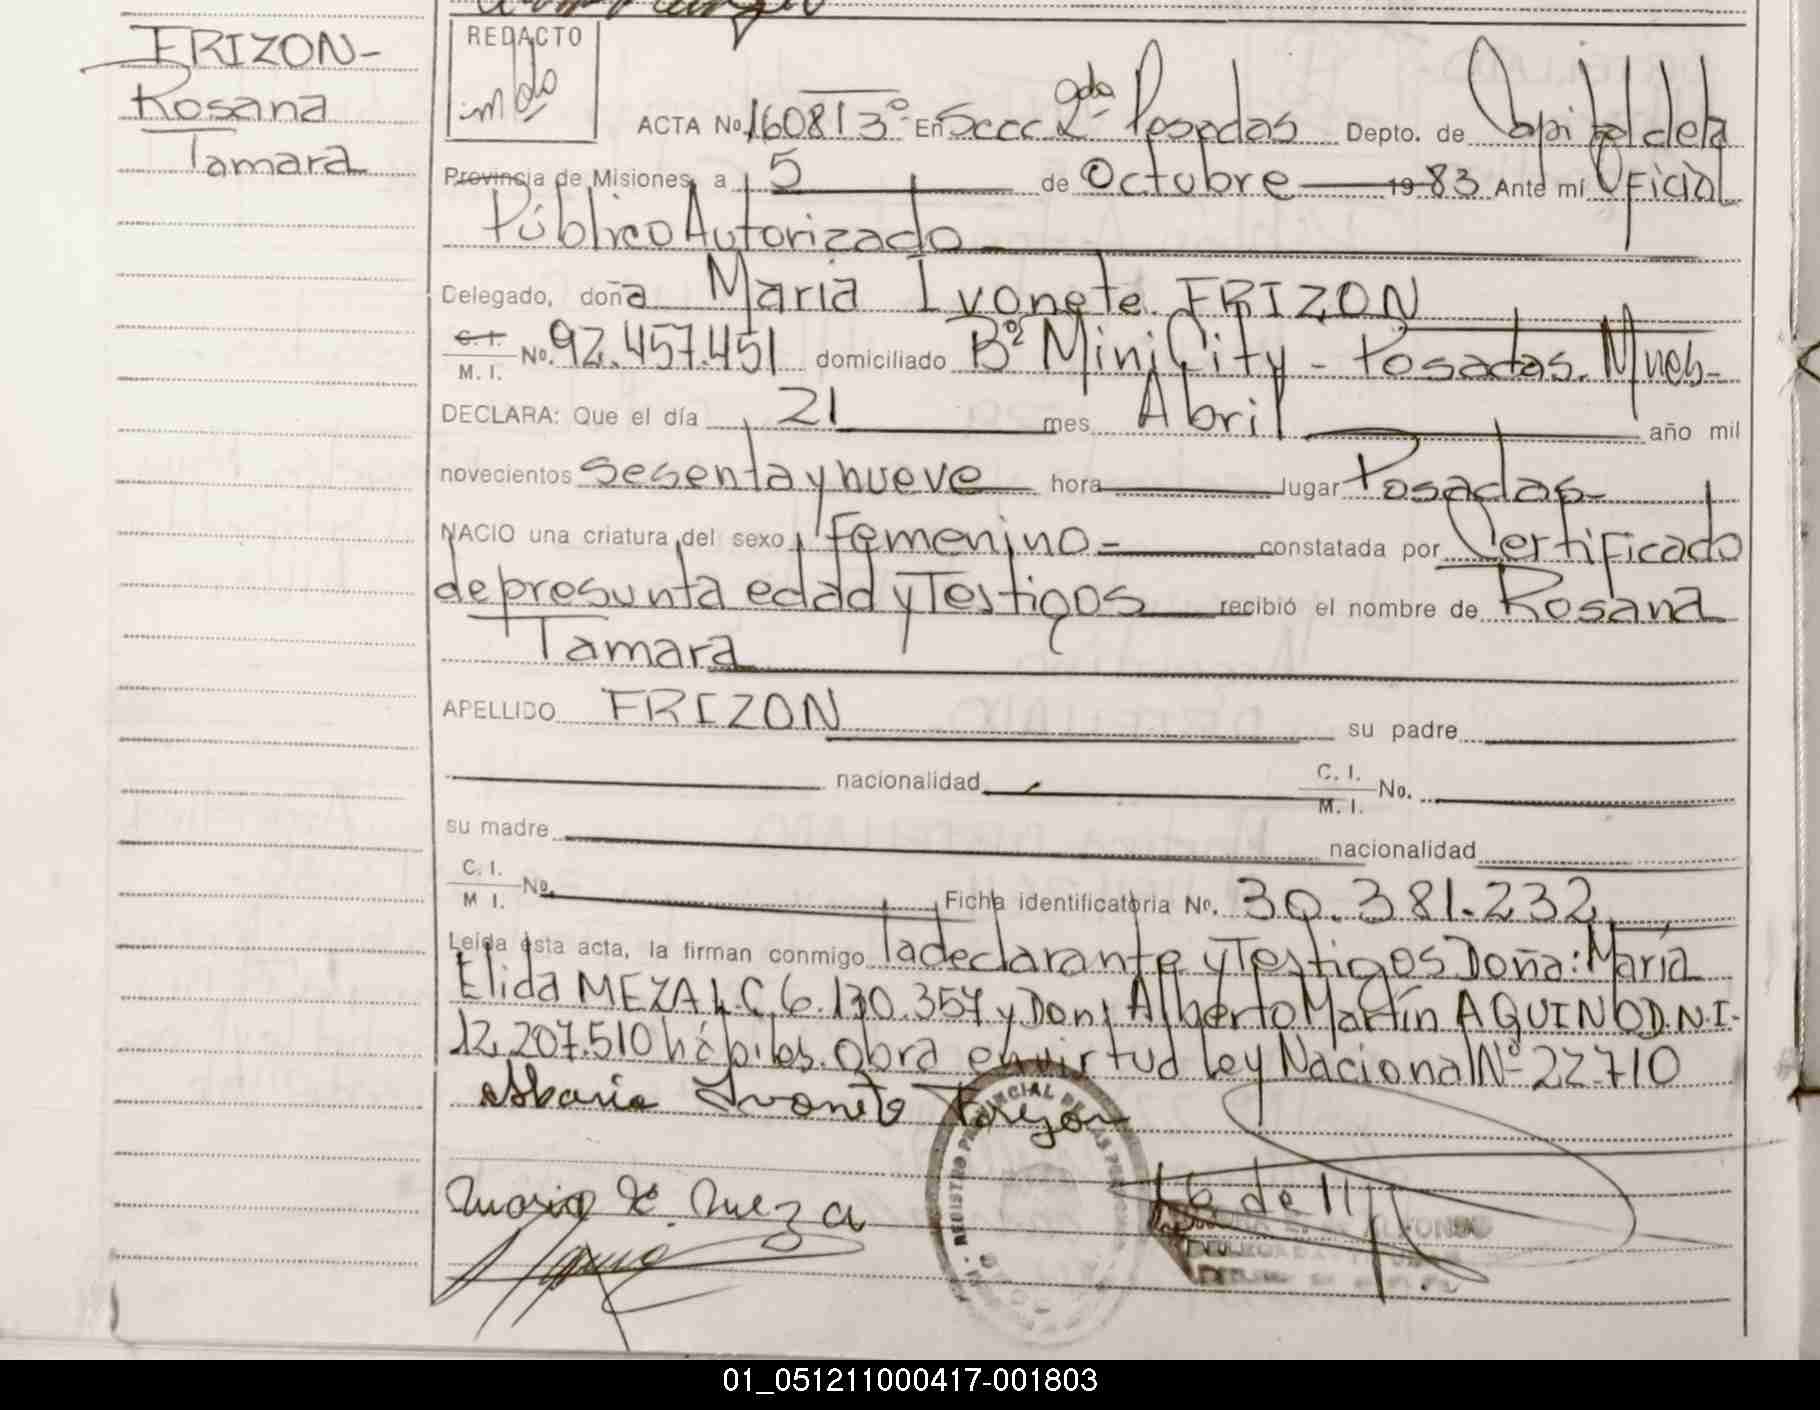 FRIZON-
Rosana
Tamara
REDACTO
ACTA No 1608 T3° En Secc 2da Posadas Depto. de Capital de la
Provincia de Misiones, a 5 de Octubre 1983 Ante mí Oficial
Público Autorizado
Delegado, doña Maria Ivonete FRIZON
C. I.
M. I. No. 92.457.451 domiciliado Bº Mini City - Posadas. Mnes-
DECLARA: Que el día 21 mes Abril año mil
novecientos sesenta y nueve hora lugar Posadas-
NACIO una criatura del sexo Femenino- constatada por Certificado
de presunta edad y Testigos recibió el nombre de Rosana
Tamara
APELLIDO FRIZON su padre
nacionalidad C. I. M. I. No.
su madre nacionalidad
C. I. M I. No. Ficha identificatoria No. 30.381.232
Leída esta acta, la firman conmigo la declarante y Testigos Doña: María
Elida MEZA L.C 6.130.357 y Don: Alberto Martín AQUINO D.N.I.
12.207.510 hábiles. Obra en virtud Ley Nacional Nº 22.710
Maria Ivonete Frizon
Maria E. Meza
REGISTRO PROVINCIAL DE LAS PERSONAS
01_051211000417-001803